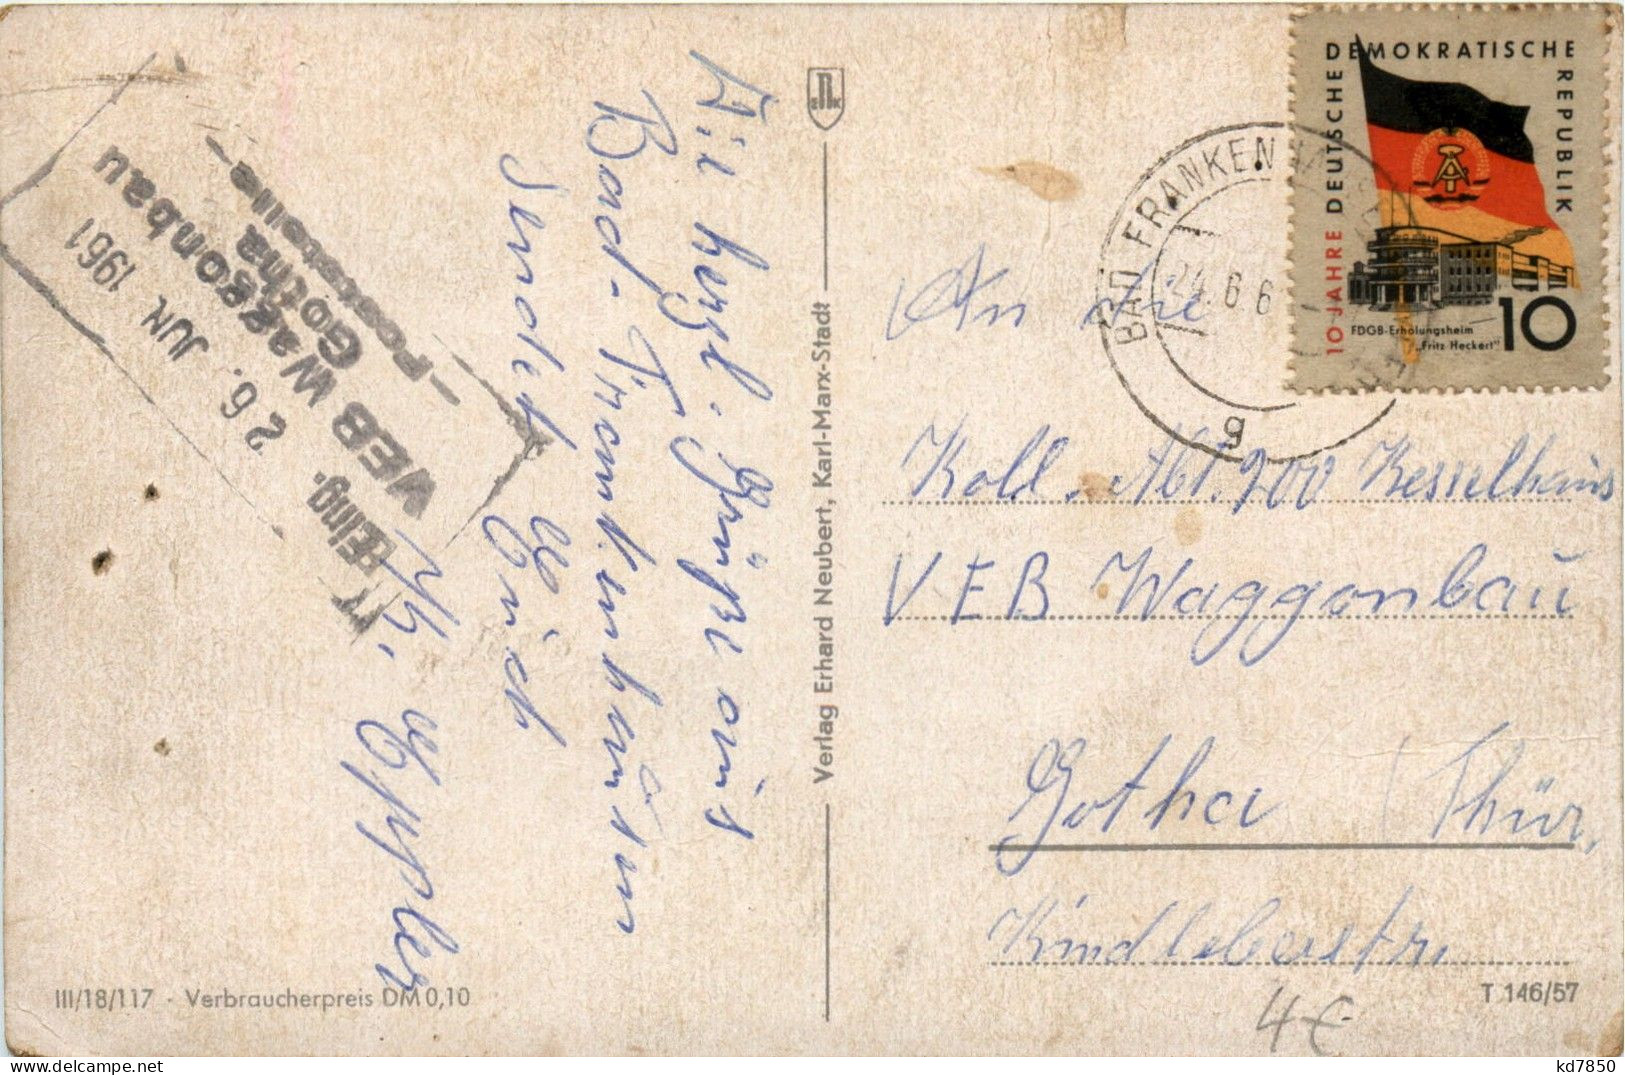 Die herzl. Grüße aus
Bad-Frankenhausen
Sendet Euch
E. Eppler
Eing.
VEB Waggonbau
Gotha
-Poststelle-
26. JUN 1961
III/18/117 · Verbraucherpreis DM 0,10
Verlag Erhard Neubert, Karl-Marx-Stadt
BAD FRANKENHAUSEN
24.6.6
g
10 JAHRE DEUTSCHE DEMOKRATISCHE REPUBLIK
FDGB-Erholungsheim
„Fritz Heckert"
10
An die
Koll. Abt. 200 Kesselhaus
VEB Waggonbau
Gotha (Thür.
Kindleberstr.
T 146/57
4€
kd7850